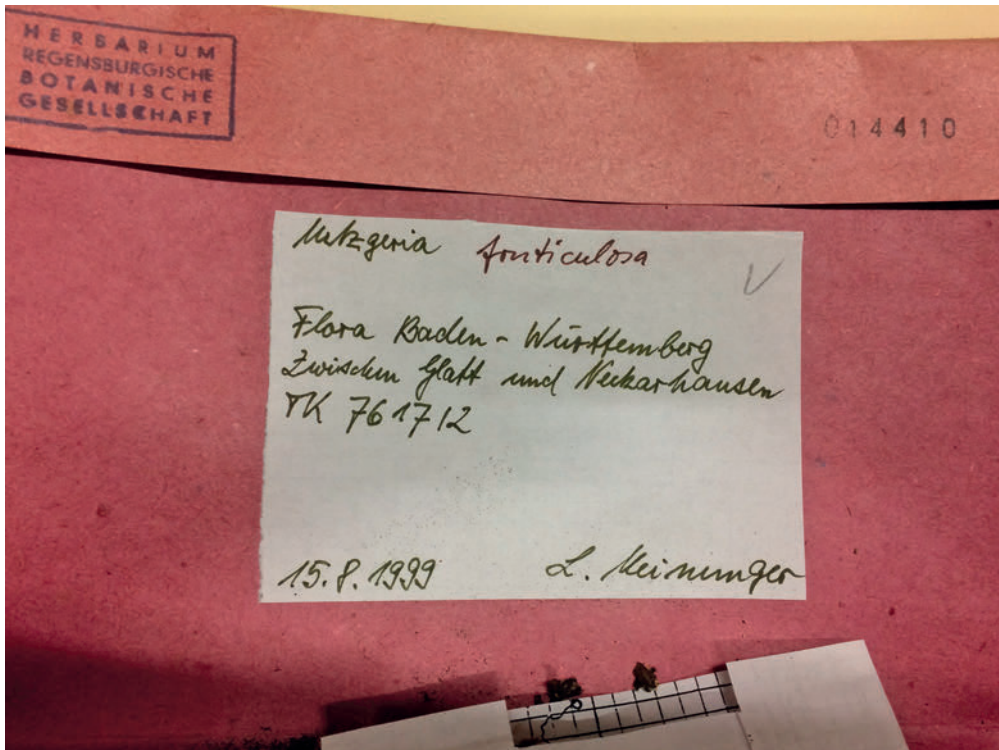 HERBARIUM
REGENSBURGISCHE
BOTANISCHE
GESELLSCHAFT
014410
Metzgeria fruticulosa
Flora Baden-Württemberg
Zwischen Glatt und Neckarhausen
TK 7617/2
15.8.1999 L. Meinunger